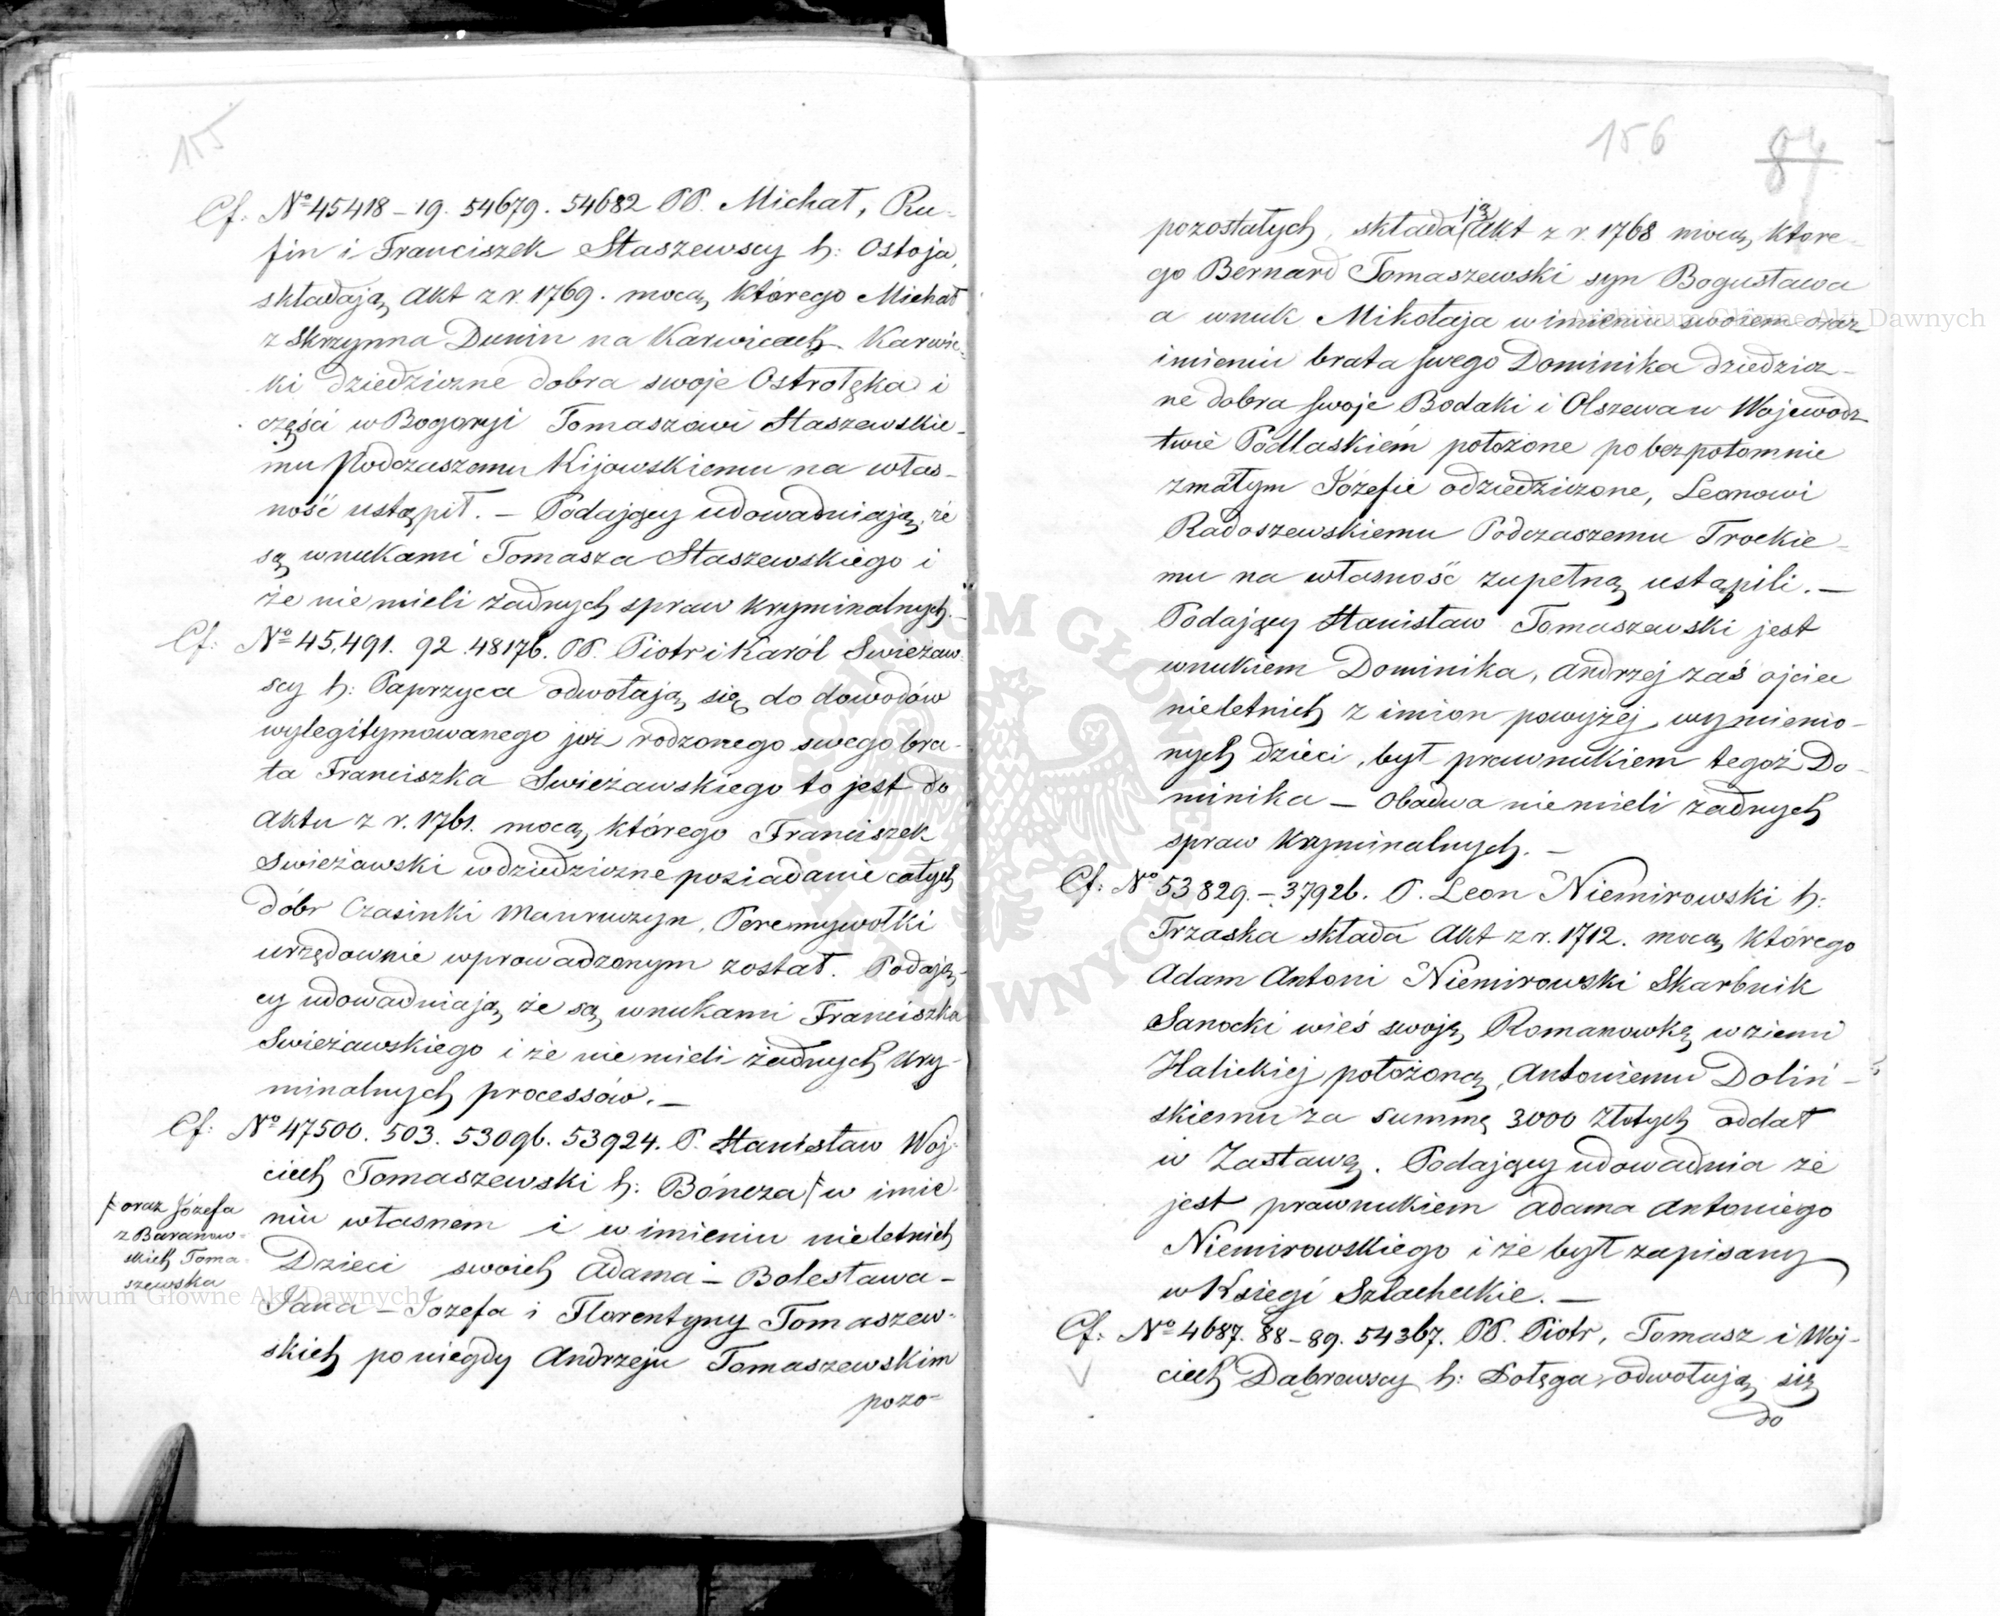 155
Cf. № 45418 – 19. 54679. 54682 PP. Michał, Ru-
fin i Franciszek Staszewscy h: Ostoja,
składają akt z r. 1769. mocą którego Michał
z Skrzynna Dunin na Karwicach Karwic-
ki dziedziczne dobra swoje Ostrołęka i
części w Bogoryi Tomaszowi Staszewskie-
mu Podczaszemu Kijowskiemu na włas-
ność ustąpił. – Podający udowadniają, że
są wnukami Tomasza Staszewskiego i
że nie mieli żadnych spraw kryminalnych. –
Cf: № 45,491. 92. 48176. PP. Piotr i Karól Swieżaw-
scy h: Paprzyca odwołają się do dowodów
wylegitymowanego już rodzonego swego bra-
ta Franciszka Swieżawskiego to jest do
aktu z r. 1761. mocą którego Franciszek
Swieżawski w dziedziczne posiadanie całych
dóbr Czasinki Manruczyn, Peremywołki
urzędownie wprowadzonym został. Podają-
cy udowadniają że są wnukami Franciszka
Swieżawskiego i że nie mieli żadnych kry-
minalnych processów. –
Cf: № 47500. 503. 53096. 53924. P. Stanisław Woj-
ciech Tomaszewski h: Bończa w imie-
niu własnem i w imieniu nieletnich
Dzieci swoich Adama – Bolesława –
Jana – Jozefa i Florentyny Tomaszew-
skich po niegdy Andrzeju Tomaszewskim
pozo-
oraz Józefa
z Baranow-
skich Toma-
szewska
156
84
pozostałych, składa ją akt z r. 1768 mocą które-
go Bernard Tomaszewski syn Bogusława
a wnuk Mikołaja w imieniu swoiem oraz
imieniu brata swego Dominika dziedzicz-
ne dobra swoje Bodaki i Olszewa w Wojewódz-
twie Podlaskiém położone po bezpotomnie
zmałym Józefie odziedziczone, Leonowi
Radoszewskiemu Podczaszemu Trockie-
mu na własność zupełną ustąpili. –
Podający Stanisław Tomaszewski jest
wnukiem Dominika, Andrzej zaś ojciec
nieletnich z imion powyżej wymienio-
nych dzieci, był prawnukiem tegoż Do-
minika – Obadwa nie mieli żadnych
spraw kryminalnych. –
Cf: № 53829. – 37926. P. Leon Niemirowski h:
Trzaska składa akt z r. 1712. mocą którego
Adam Antoni Niemirowski Skarbnik
Sanocki wieś swoją Romanowkę w ziemi
Halickiej położoną, Antoniemu Doliń-
skiemu za summę 3000 Złotych oddał
w Zastawę. Podający udowadnia że
jest prawnukiem Adama Antoniego
Niemirowskiego i że był zapisany
w Księgi Szlacheckie. –
Cf: № 4687. 88 – 89. 54367. PP. Piotr, Tomasz i Woj-
ciech Dąbrowscy h: Dołęga, odwołują się
do
Archiwum Główne Akt Dawnych
Archiwum Główne Akt Dawnych
ARCHIWUM GŁÓWNE AKT DAWNYCH